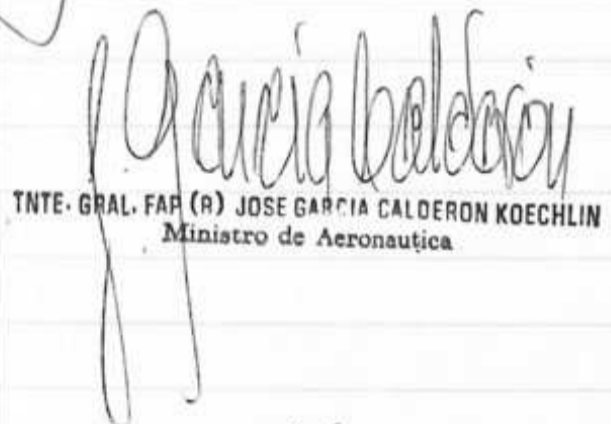 J García Calderón
TNTE. GRAL. FAP (R) JOSE GARCIA CALDERON KOECHLIN
Ministro de Aeronautica